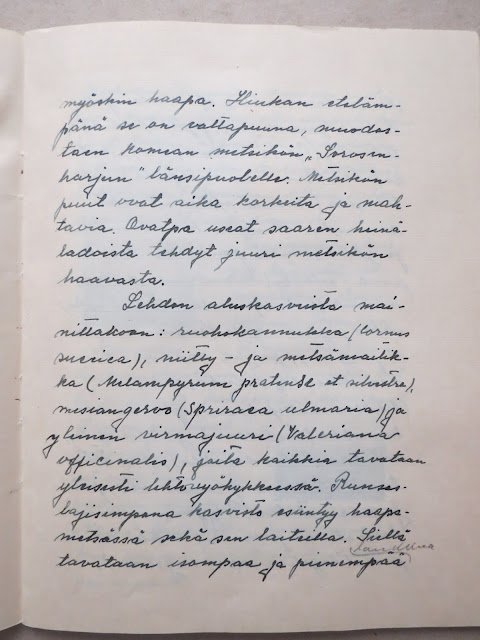 myöskin haapa. Hiukan eteläm-
pänä se on valtapuuna, muodos-
taen komean metsikön „Sorosen-
harjun" länsipuolelle. Metsikön
puut ovat aika korkeita ja mah-
tavia. Ovatpa useat saaren heinä-
ladoista tehdyt juuri metsikön
haavasta.
Lehdon aluskasveista mai-
nittakoon: ruohokannukka (Cornus
suecica), niitty- ja metsämaitik-
ka (Melampyrum pratense et silvstre),
mesiangervo (Spriraea ulmaria) ja
yleinen virmajuuri (Valeriana
officinalis), joita kaikkia tavataan
yleisesti lehtovyöhykkeessä. Runsas-
lajisimpana kasvisto esiintyy haapa-
metsässä sekä sen laiteilla. Siellä
tavataan isompaa ja pienempää